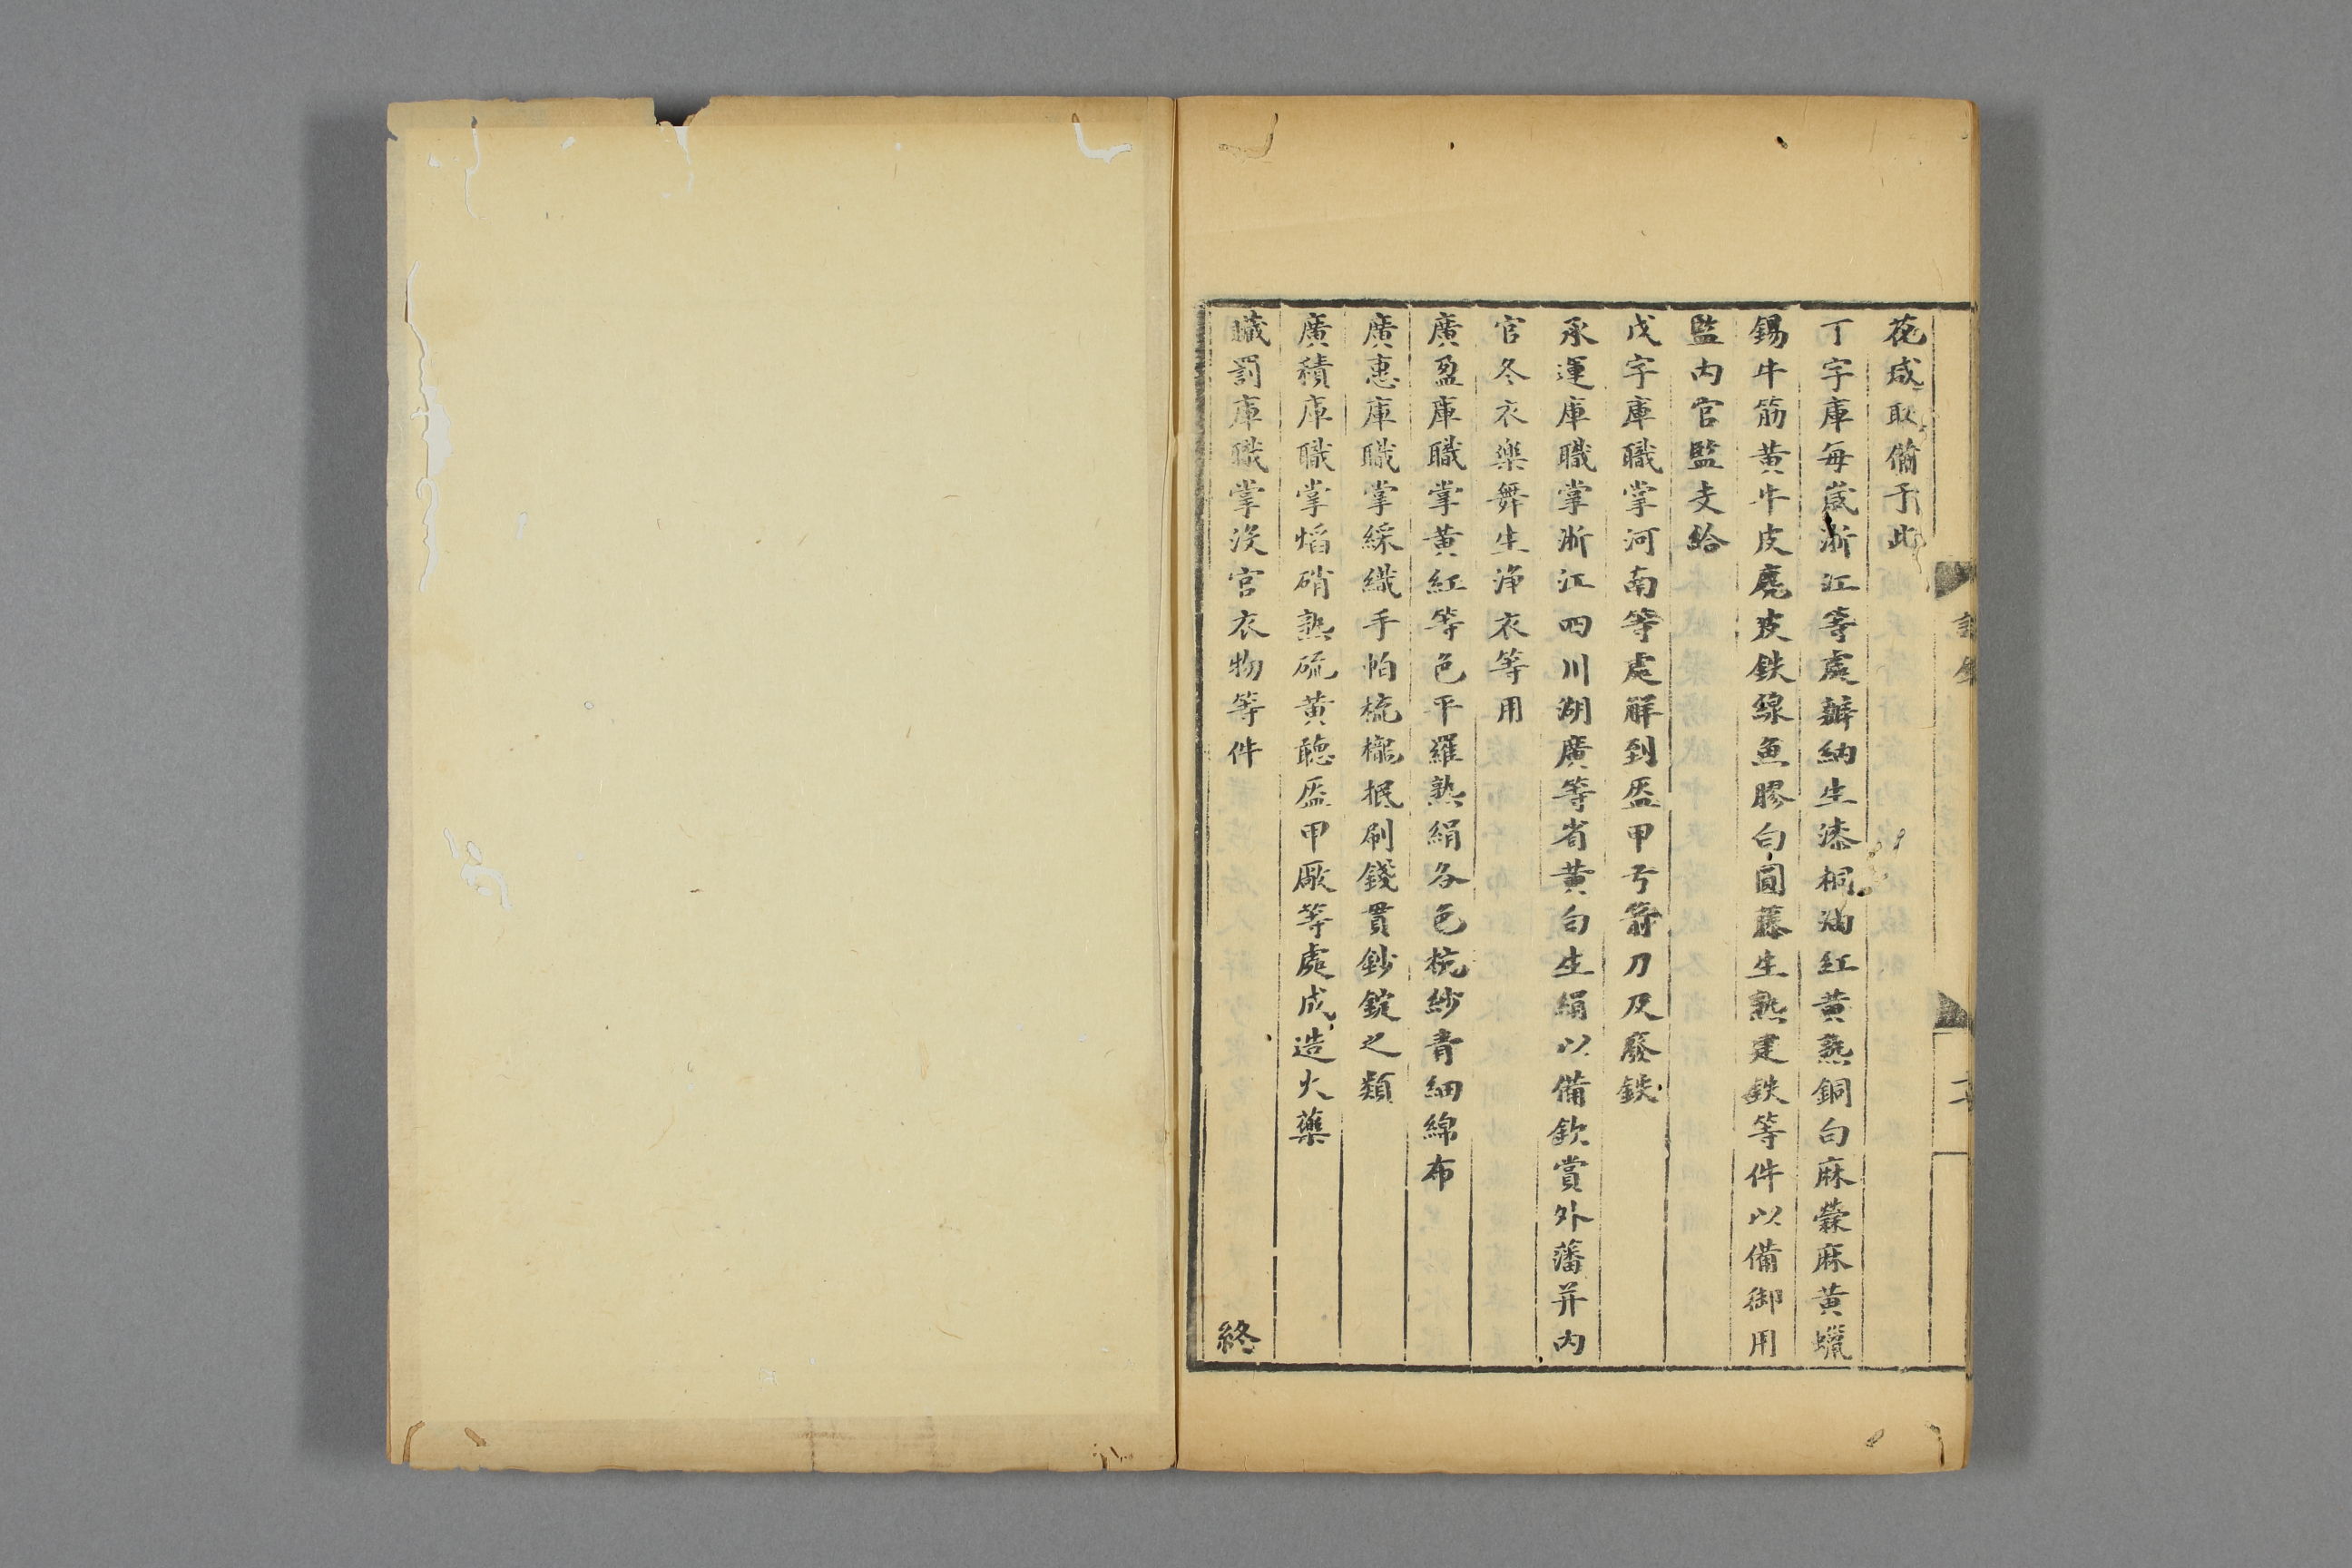 花咸取備于此
丁字庫每歲浙江等處辦納生漆桐油紅黃熟銅白麻檾麻黃蠟
錫牛筋黃牛皮麂皮鉄線魚膠白圓藤生熟建鉄等件以備御用
監內官監支給
戊字庫職掌河南等處觧到盔甲弓箭刀及廢鉄
承運庫職掌浙江四川湖廣等省黃白生絹以備欽賞外藩并內
官冬衣樂舞生淨衣等用
廣盈庫職掌黃紅等色平羅熟絹各色杭紗青細綿布
廣惠庫職掌綵織手帕梳櫳抿刷錢貫鈔錠之類
廣積庫職掌焰硝熟硫黃聽盔甲厰等處成造火藥
贓罰庫職掌沒官衣物等件
終
二